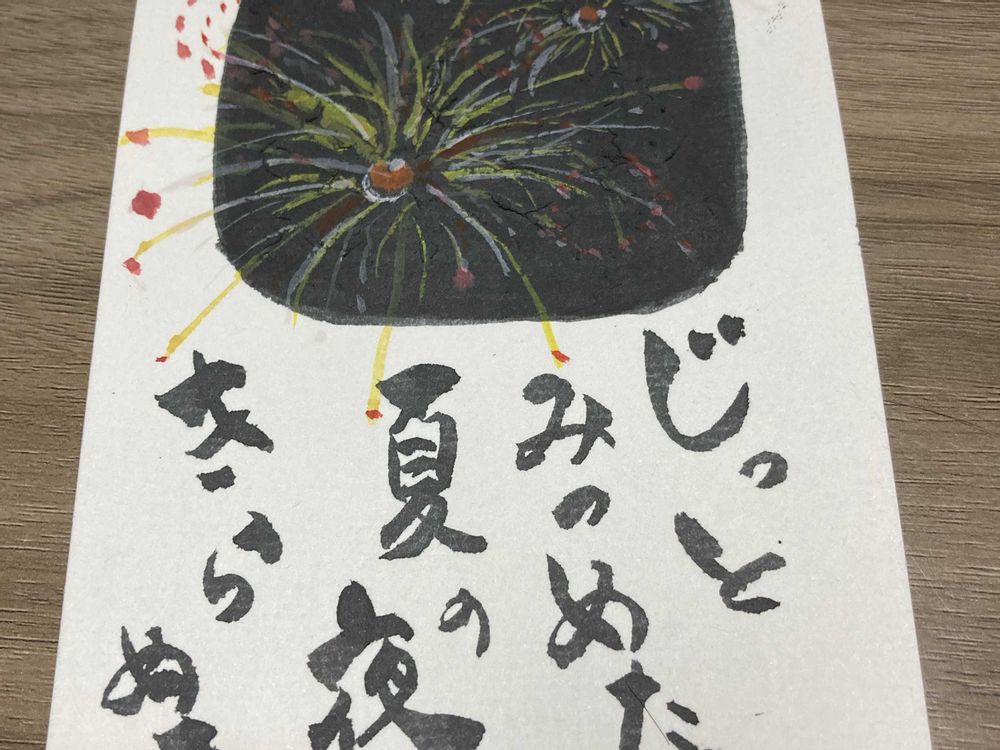 じっと
みつめた
夏の夜
きらめ